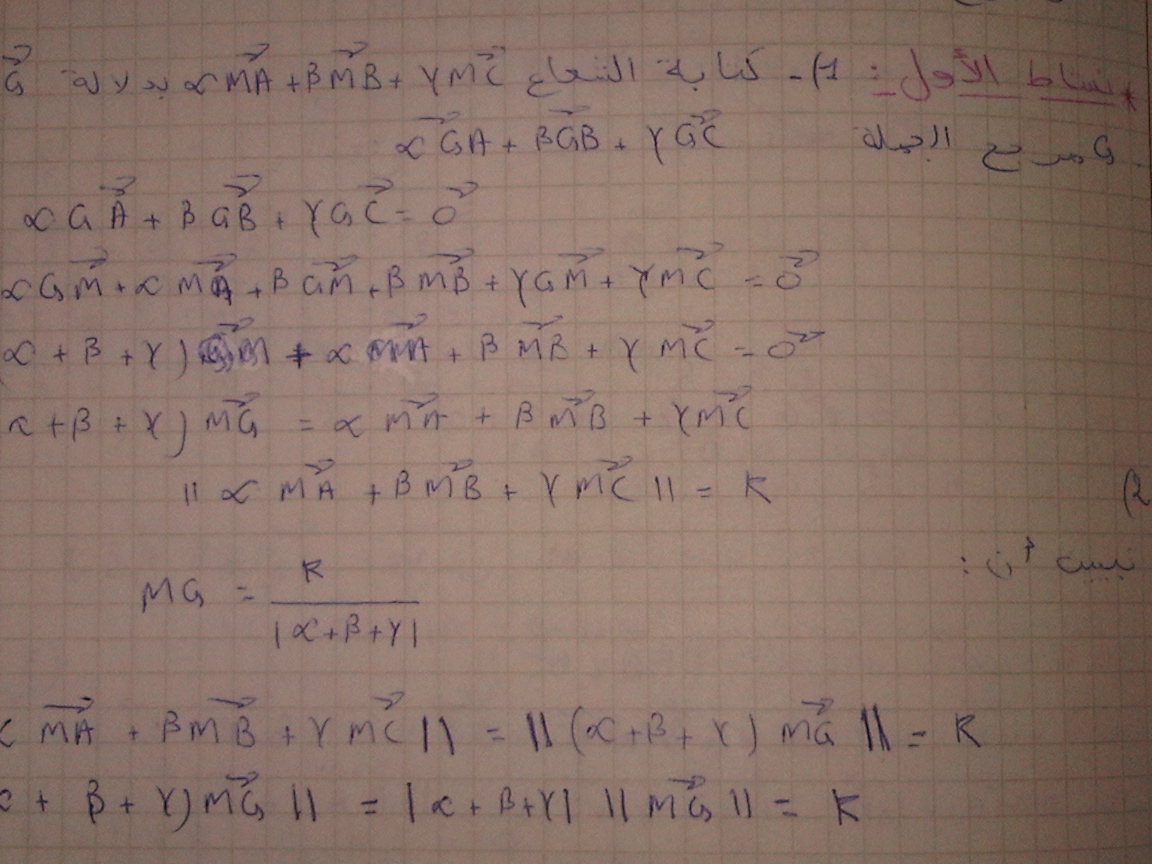 * نشاط الأول: 1) - كتابة الشعاع $\alpha \vec{MA} + \beta \vec{MB} + \gamma \vec{MC}$ بدلالة $\vec{G}$
G مرجح الجملة $\alpha \vec{GA} + \beta \vec{GB} + \gamma \vec{GC}$
$\alpha \vec{GA} + \beta \vec{GB} + \gamma \vec{GC} = \vec{0}$
$\alpha \vec{GM} + \alpha \vec{MA} + \beta \vec{GM} + \beta \vec{MB} + \gamma \vec{GM} + \gamma \vec{MC} = \vec{0}$
$(\alpha + \beta + \gamma) \vec{GM} + \alpha \vec{MA} + \beta \vec{MB} + \gamma \vec{MC} = \vec{0}$
$\alpha + \beta + \gamma) \vec{MG} = \alpha \vec{MA} + \beta \vec{MB} + \gamma \vec{MC}$
2) $|| \alpha \vec{MA} + \beta \vec{MB} + \gamma \vec{MC} || = K$
نبين أن:
$MG = \frac{K}{|\alpha + \beta + \gamma|}$
$\alpha \vec{MA} + \beta \vec{MB} + \gamma \vec{MC} || = || (\alpha + \beta + \gamma) \vec{MG} || = K$
$\alpha + \beta + \gamma) \vec{MG} || = |\alpha + \beta + \gamma| \, || \vec{MG} || = K$